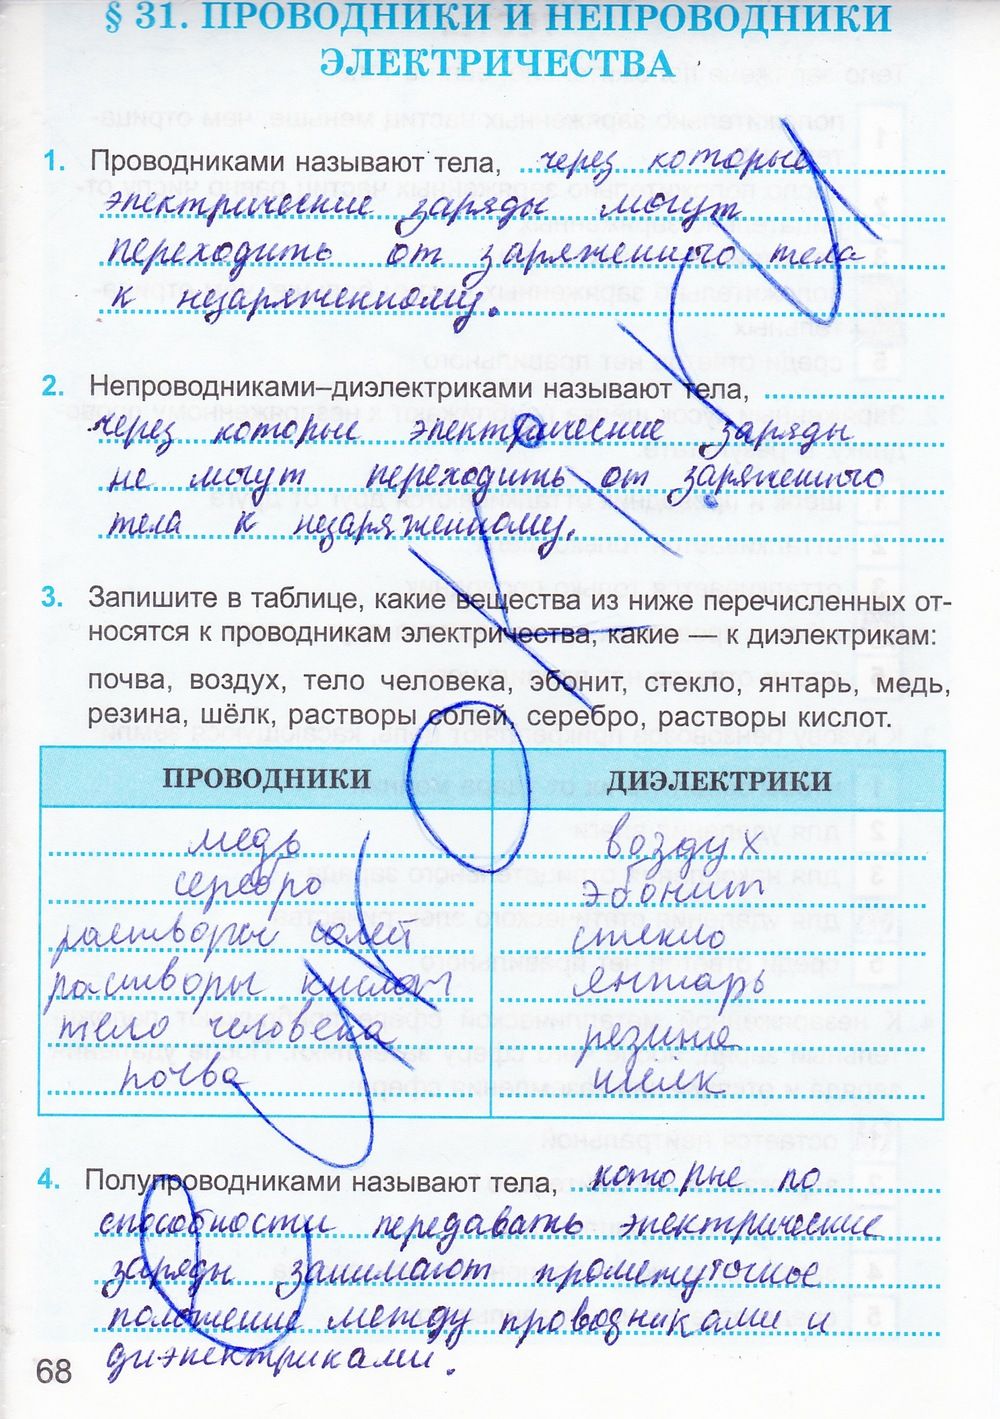 § 31. ПРОВОДНИКИ И НЕПРОВОДНИКИ
ЭЛЕКТРИЧЕСТВА
1. Проводниками называют тела, через которые
электрические заряды могут
переходить от заряженного тела
к незаряженному.
2. Непроводниками–диэлектриками называют тела,
через которые электрические заряды
не могут переходить от заряженного
тела к незаряженному.
3. Запишите в таблице, какие вещества из ниже перечисленных от-
носятся к проводникам электричества, какие — к диэлектрикам:
почва, воздух, тело человека, эбонит, стекло, янтарь, медь,
резина, шёлк, растворы солей, серебро, растворы кислот.
ПРОВОДНИКИ ДИЭЛЕКТРИКИ
медь воздух
серебро эбонит
растворы солей стекло
растворы кислот янтарь
тело человека резина
почва шёлк
4. Полупроводниками называют тела, которые по
способности передавать электрические
заряды занимают промежуточное
положение между проводниками и
диэлектриками.
68